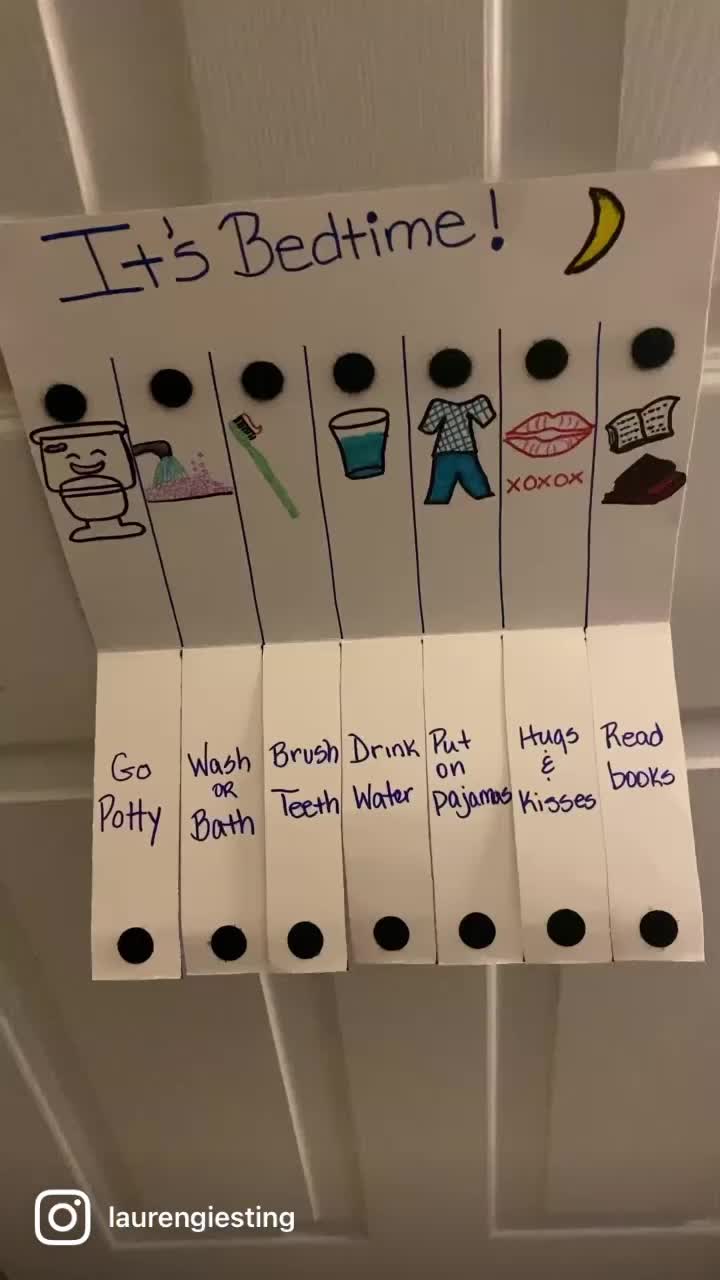 It's Bedtime!
xoxox
Go
Potty
Wash
OR
Bath
Brush
Teeth
Drink
Water
Put
on
pajamas
Hugs
&
Kisses
Read
books
laurengiesting